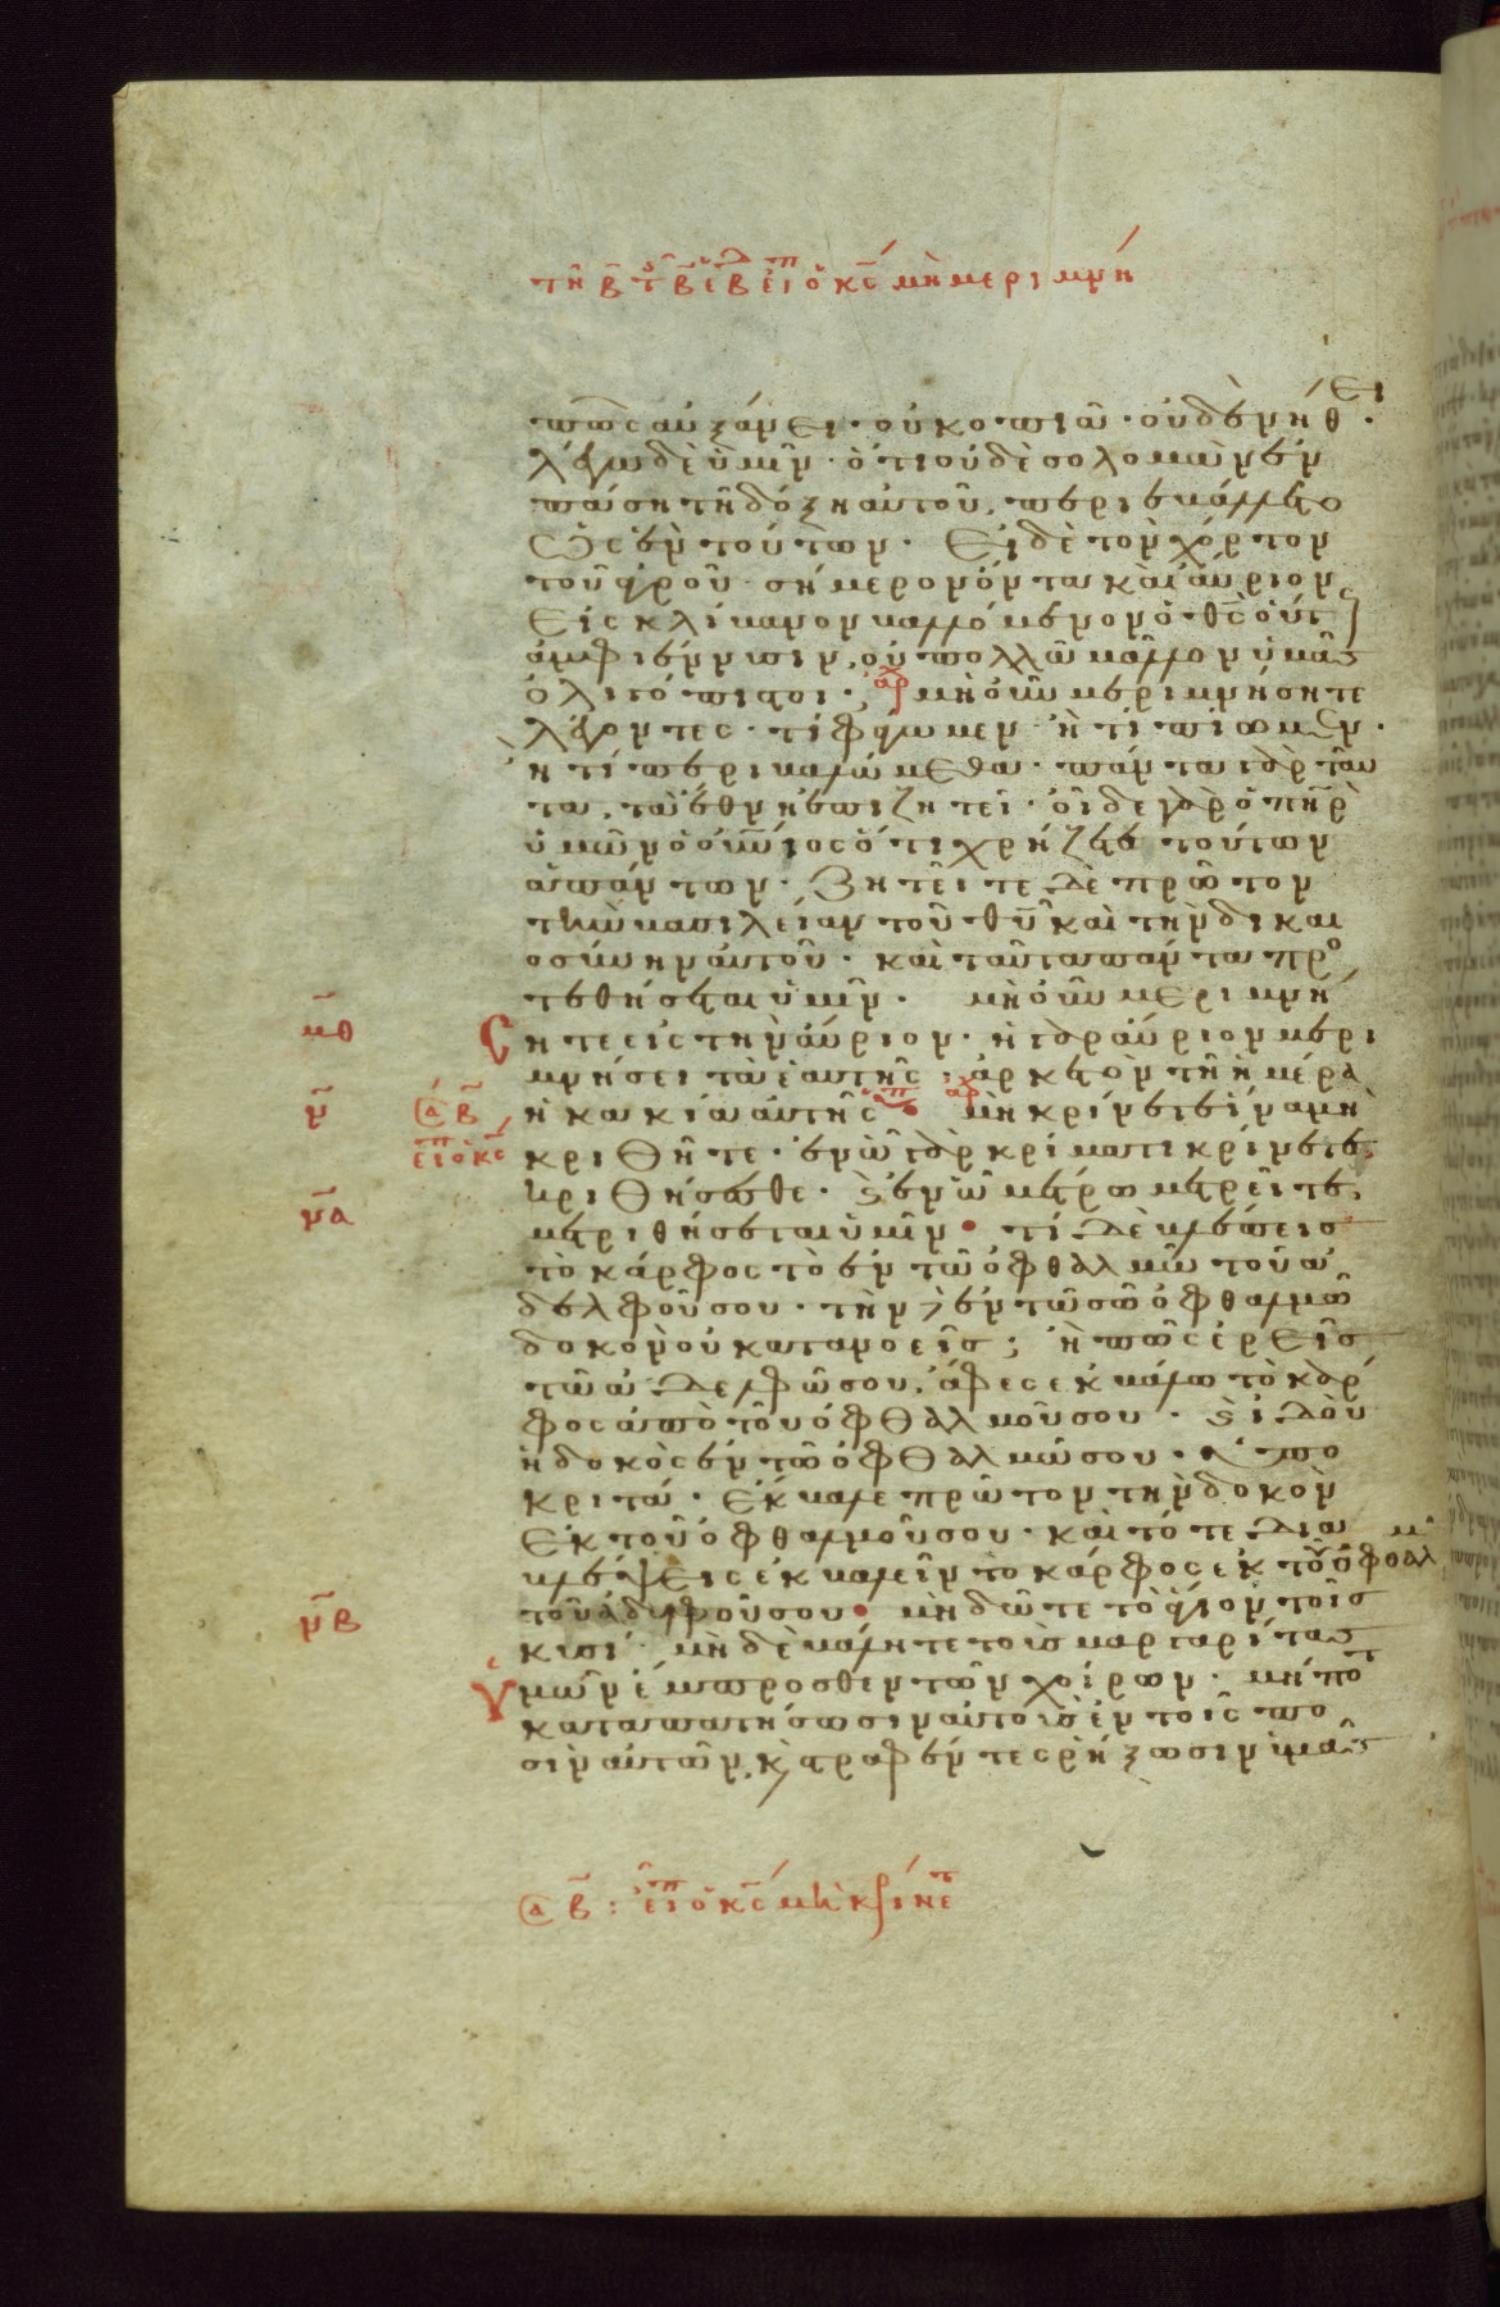 τῇ β τ β ε β εἶπ ὁ κς μὴ μεριμνή
πῶς αὐξάνει· οὐ κοπιᾷ· οὐδὲ νήθει·
λέγω δὲ ὑμῖν· ὅτι οὐδὲ σολομὼν ἐν
πάσῃ τῇ δόξῃ αὐτοῦ, περιεβάλλετο
ὡς ἓν τούτων· Εἰ δὲ τὸν χόρτον
τοῦ ἀγροῦ· σήμερον ὄντα καὶ αὔριον
εἰς κλίβανον βαλλόμενον ὁ θς οὕτως
ἀμφιέννυσιν, οὐ πολλῷ μᾶλλον ὑμᾶς
ὀλιγόπιστοι· αρχ μὴ οὖν μεριμνήσητε
λέγοντες· τί φάγωμεν· ἢ τί πίωμεν·
ἢ τί περιβαλώμεθα· πάντα γὰρ ταῦ
τα, τὰ ἔθνη ἐπιζητεῖ· οἶδε γὰρ ὁ πηρ
ὑμῶν ὁ οὐνιος ὅτι χρήζετε τούτων
ἁπάντων· Ζητεῖτε δὲ πρῶτον
τὴν βασιλείαν τοῦ θυ καὶ τὴν δικαι
οσύνην αὐτοῦ· καὶ ταῦτα πάντα προ
τεθήσεται ὑμῖν· μὴ οὖν μεριμνή
μθ σητε εἰς τὴν αὔριον· ἡ γὰρ αὔριον μερι
μνήσει τὰ ἑαυτῆς· ἀρκετὸν τῇ ἡμέρα
ν Σα β ἡ κακία αὐτῆς· αρχ μὴ κρίνετε ἵνα μὴ
εἶπ ὁ κς κριθῆτε· ἐν ᾧ γὰρ κρίματι κρίνετε,
κριθήσεσθε· καὶ ἐν ᾧ μέτρω μετρεῖτε,
να μετριθήσεται ὑμῖν· τί δὲ βλέπεις
τὸ κάρφος τὸ ἐν τῷ ὀφθαλμῷ τοῦ ἀ
δελφοῦ σου· τὴν δὲ ἐν τῷ σῷ ὀφθαλμῷ
δοκὸν οὐ κατανοεῖς; ἢ πῶς ἐρεῖς
τῷ ἀδελφῷ σου, ἄφες ἐκβάλω τὸ κάρ
φος ἀπὸ τοῦ ὀφθαλμοῦ σου· καὶ ἰδοὺ
ἡ δοκὸς ἐν τῷ ὀφθαλμῷ σου· ὑπο
κριτά· ἔκβαλε πρῶτον τὴν δοκὸν
ἐκ τοῦ ὀφθαλμοῦ σου· καὶ τότε δια
βλέψεις ἐκβαλεῖν τὸ κάρφος ἐκ τοῦ ὀφθαλμ
νβ τοῦ ἀδελφοῦ σου· μὴ δῶτε τὸ ἅγιον τοῖς
κυσί· μὴ δὲ βάλητε τοὺς μαργαρίτας
ὑμῶν ἔμπροσθεν τῶν χοίρων· μήποτ
καταπατήσωσιν αὐτοὺς ἐν τοῖς πο
σὶν αὐτῶν, καὶ στραφέντες ῥήξωσιν ὑμᾶς
Σα β: εἶπ ὁ κς μὴ κρίνετ